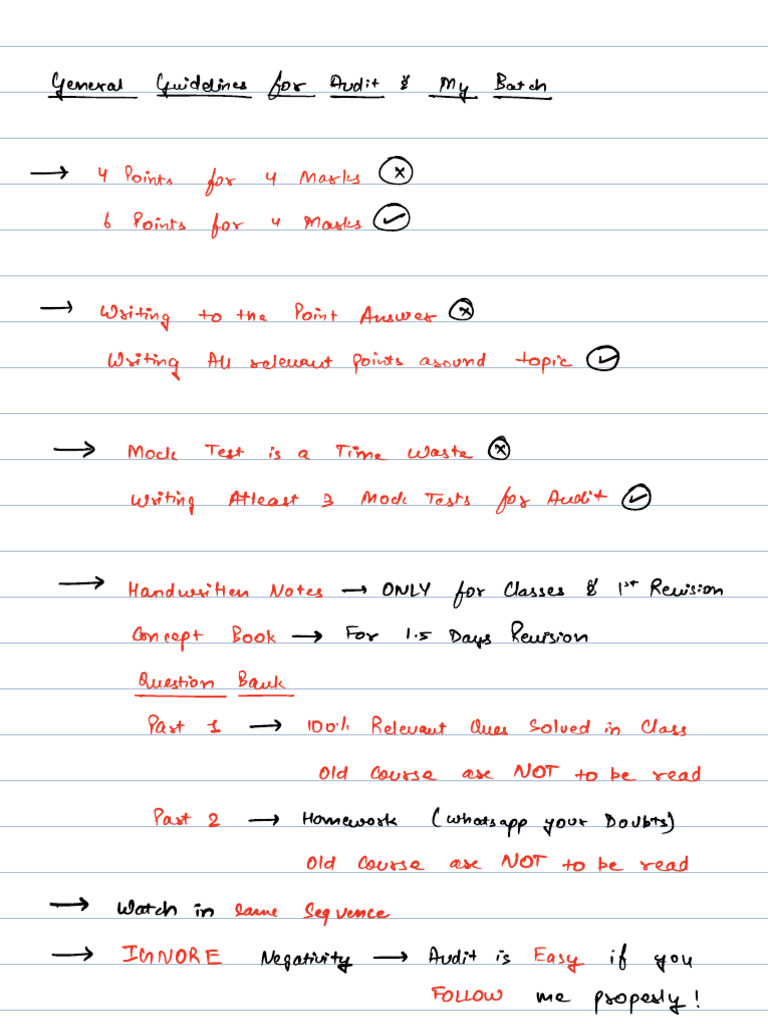 General Guidelines for Audit & My Batch
→ 4 Points for 4 Marks ⓧ
6 Points for 4 Marks ✓
→ Writing to the Point Answer ⓧ
Writing All relevant points around topic ✓
→ Mock Test is a Time Waste ⓧ
Writing Atleast 3 Mock Tests for Audit ✓
→ Handwritten Notes → ONLY for Classes & 1st Revision
Concept Book → For 1.5 Days Revision
Question Bank
Part 1 → 100% Relevant Ques Solved in Class
Old Course are NOT to be read
Part 2 → Homework (Whatsapp your Doubts)
Old Course are NOT to be read
→ Watch in same Sequence
→ IGNORE Negativity → Audit is Easy if you
FOLLOW me properly!